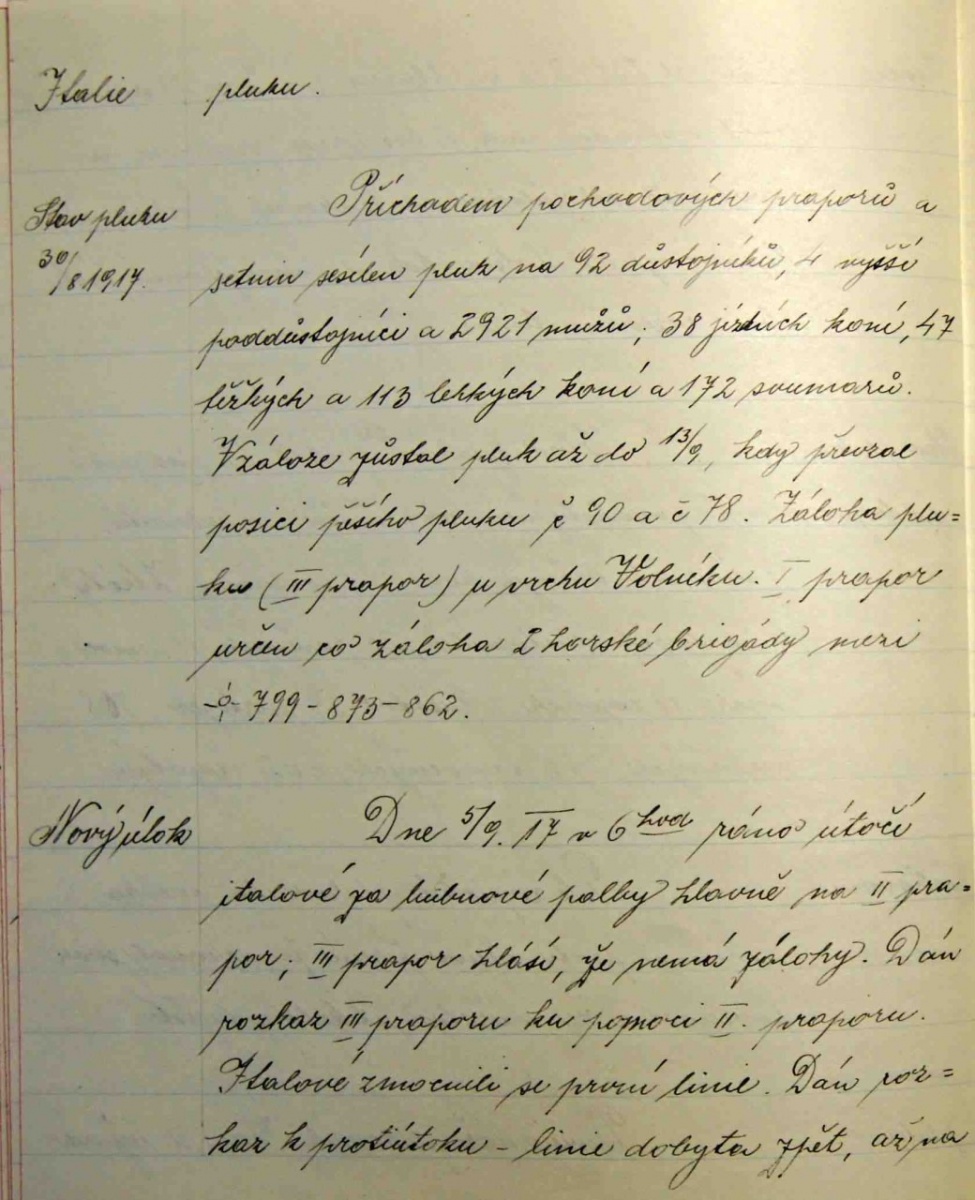 Italie pluku.
Stav pluku Příchodem pochodových praporů a
30/8 1917. setnin sesílen pluk na 92 důstojníků, 4 vyšší
poddůstojníci a 2921 mužů; 38 jízdních koní, 47
těžkých a 113 lehkých koní a 172 soumarů.
V záloze zůstal pluk až do 13/9, kdy převzal
posici pěšího pluku č 90 a č 78. Záloha plu=
ku (III prapor) u vrchu Volníku. I prapor
určen co záloha 2 horské brigády mezi
799 - 873 - 862.
Nový útok Dne 5/9. 17 v 6 hod ráno útočí
italové za bubnové palby hlavně na II pra=
por; III prapor hlásí, že nemá zálohy. Dán
rozkaz III praporu ku pomoci II. praporu.
Italové zmocnili se první linie. Dán roz=
kaz k protiútoku - linie dobyta zpět, až na